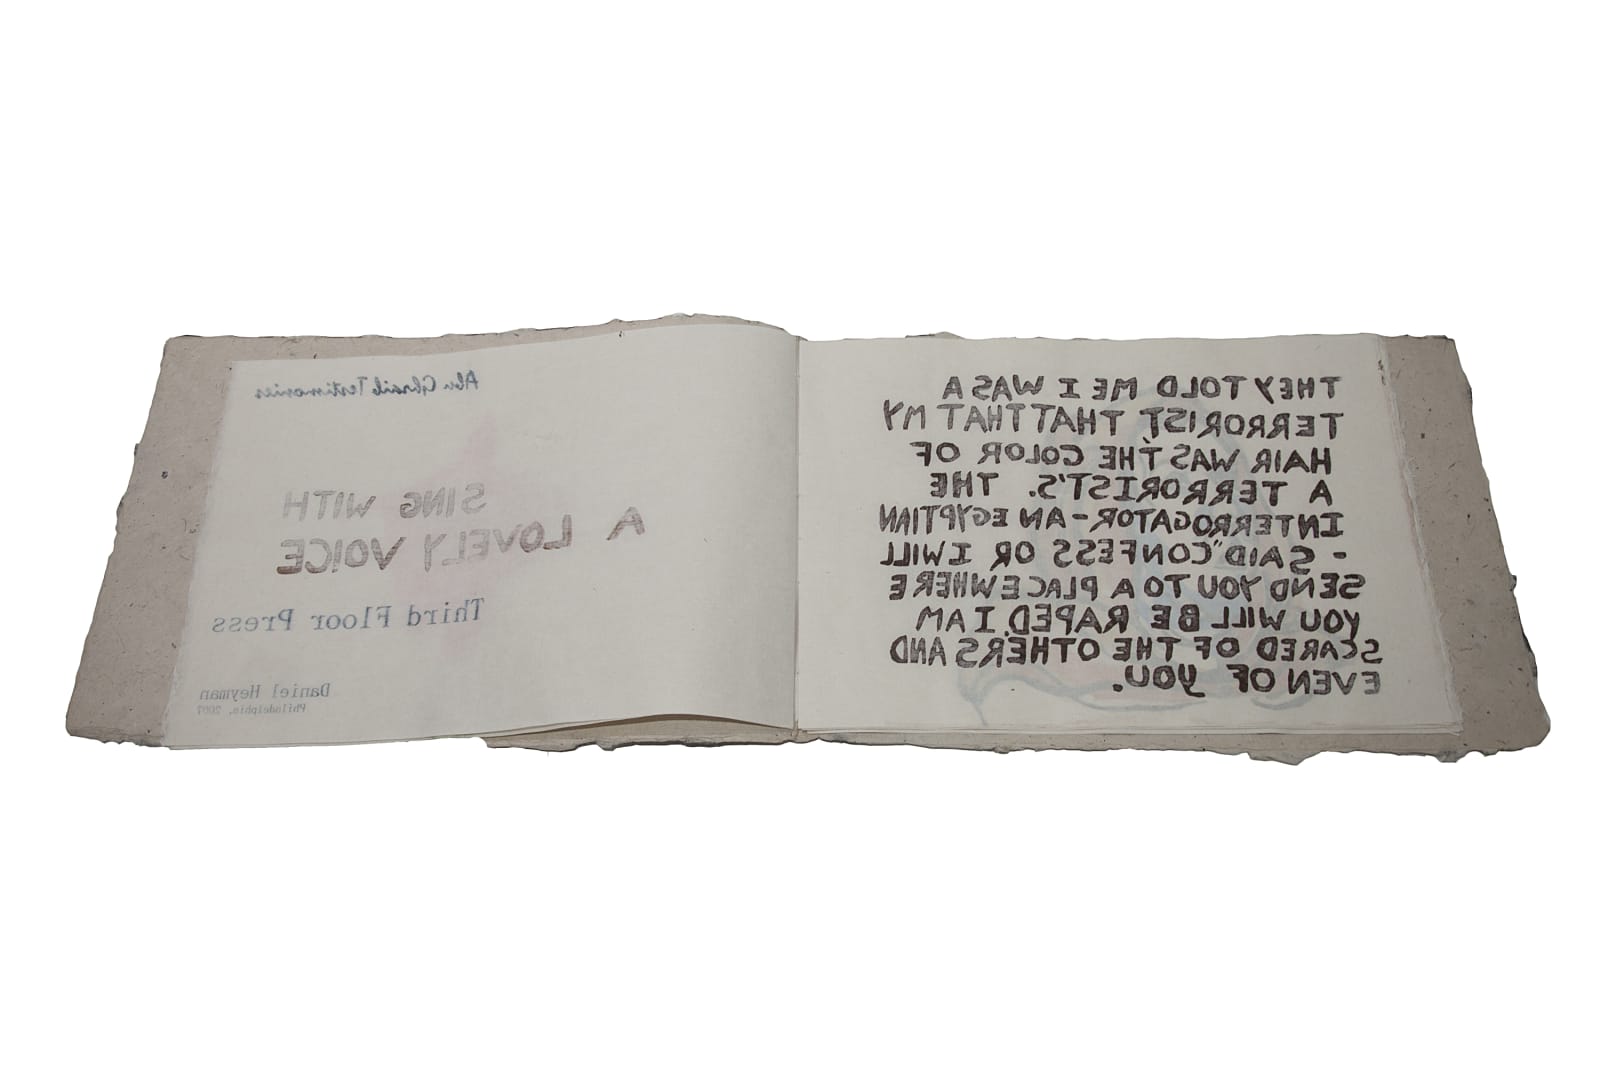 Abu Ghraib Testimonies
SING WITH
A LOVELY VOICE
Third Floor Press
Daniel Heyman
Philadelphia, 2007
THEY TOLD ME I WAS A
TERRORIST, THAT THAT MY
HAIR WAS THE COLOR OF
A TERRORIST'S. THE
INTERROGATOR - AN EGYPTIAN
- SAID "CONFESS OR I WILL
SEND YOU TO A PLACE WHERE
YOU WILL BE RAPED. I AM
SCARED OF THE OTHERS AND
EVEN OF YOU.